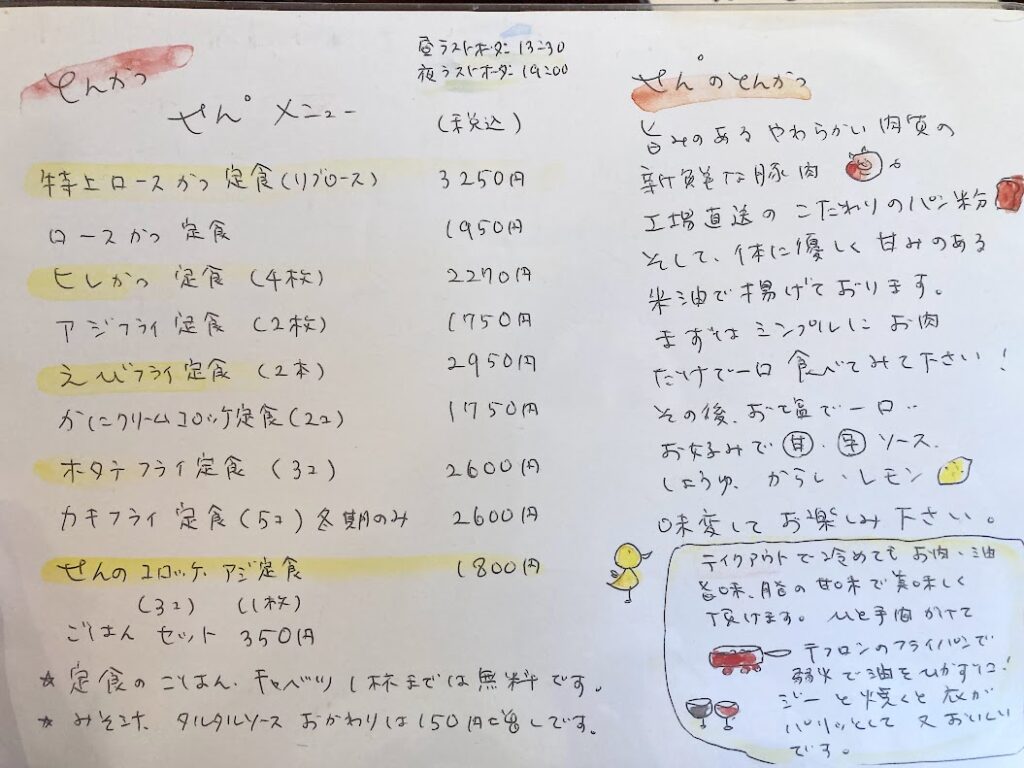 とんかつ
ぜん°メニュー
昼ラストオーダー 13:30
夜ラストオーダー 19:00
(税込)
特上ロースかつ定食(リブロース) 3250円
ロースかつ定食 1950円
ヒレかつ定食(4枚) 2270円
アジフライ定食(2枚) 1750円
えびフライ定食(2本) 2950円
かにクリームコロッケ定食(2コ) 1750円
ホタテフライ定食(3コ) 2600円
カキフライ定食(5コ)冬期のみ 2600円
ぜんのコロッケ、アジ定食 1800円
(3コ) (1枚)
ごはんセット 350円
☆ 定食のごはん、キャベツ1杯までは無料です。
☆ みそ汁、タルタルソースおかわりは150円増しです。
ぜん°のとんかつ
旨みのあるやわらかい肉質の
新鮮な豚肉
工場直送のこだわりのパン粉
そして、体に優しく甘みのある
米油で揚げております。
まずはシンプルにお肉
だけで一口食べてみて下さい!
その後、お塩で一口..
お好みで甘・辛ソース、
しょうゆ、からし・レモン
味変してお楽しみ下さい。
テイクアウトで冷めてもお肉・油
旨味、脂の甘味で美味しく
頂けます。ひと手間かけて
テフロンのフライパンで
弱火で油をひかずに
ジーと焼くと衣が
パリッとして又おいしい
です。